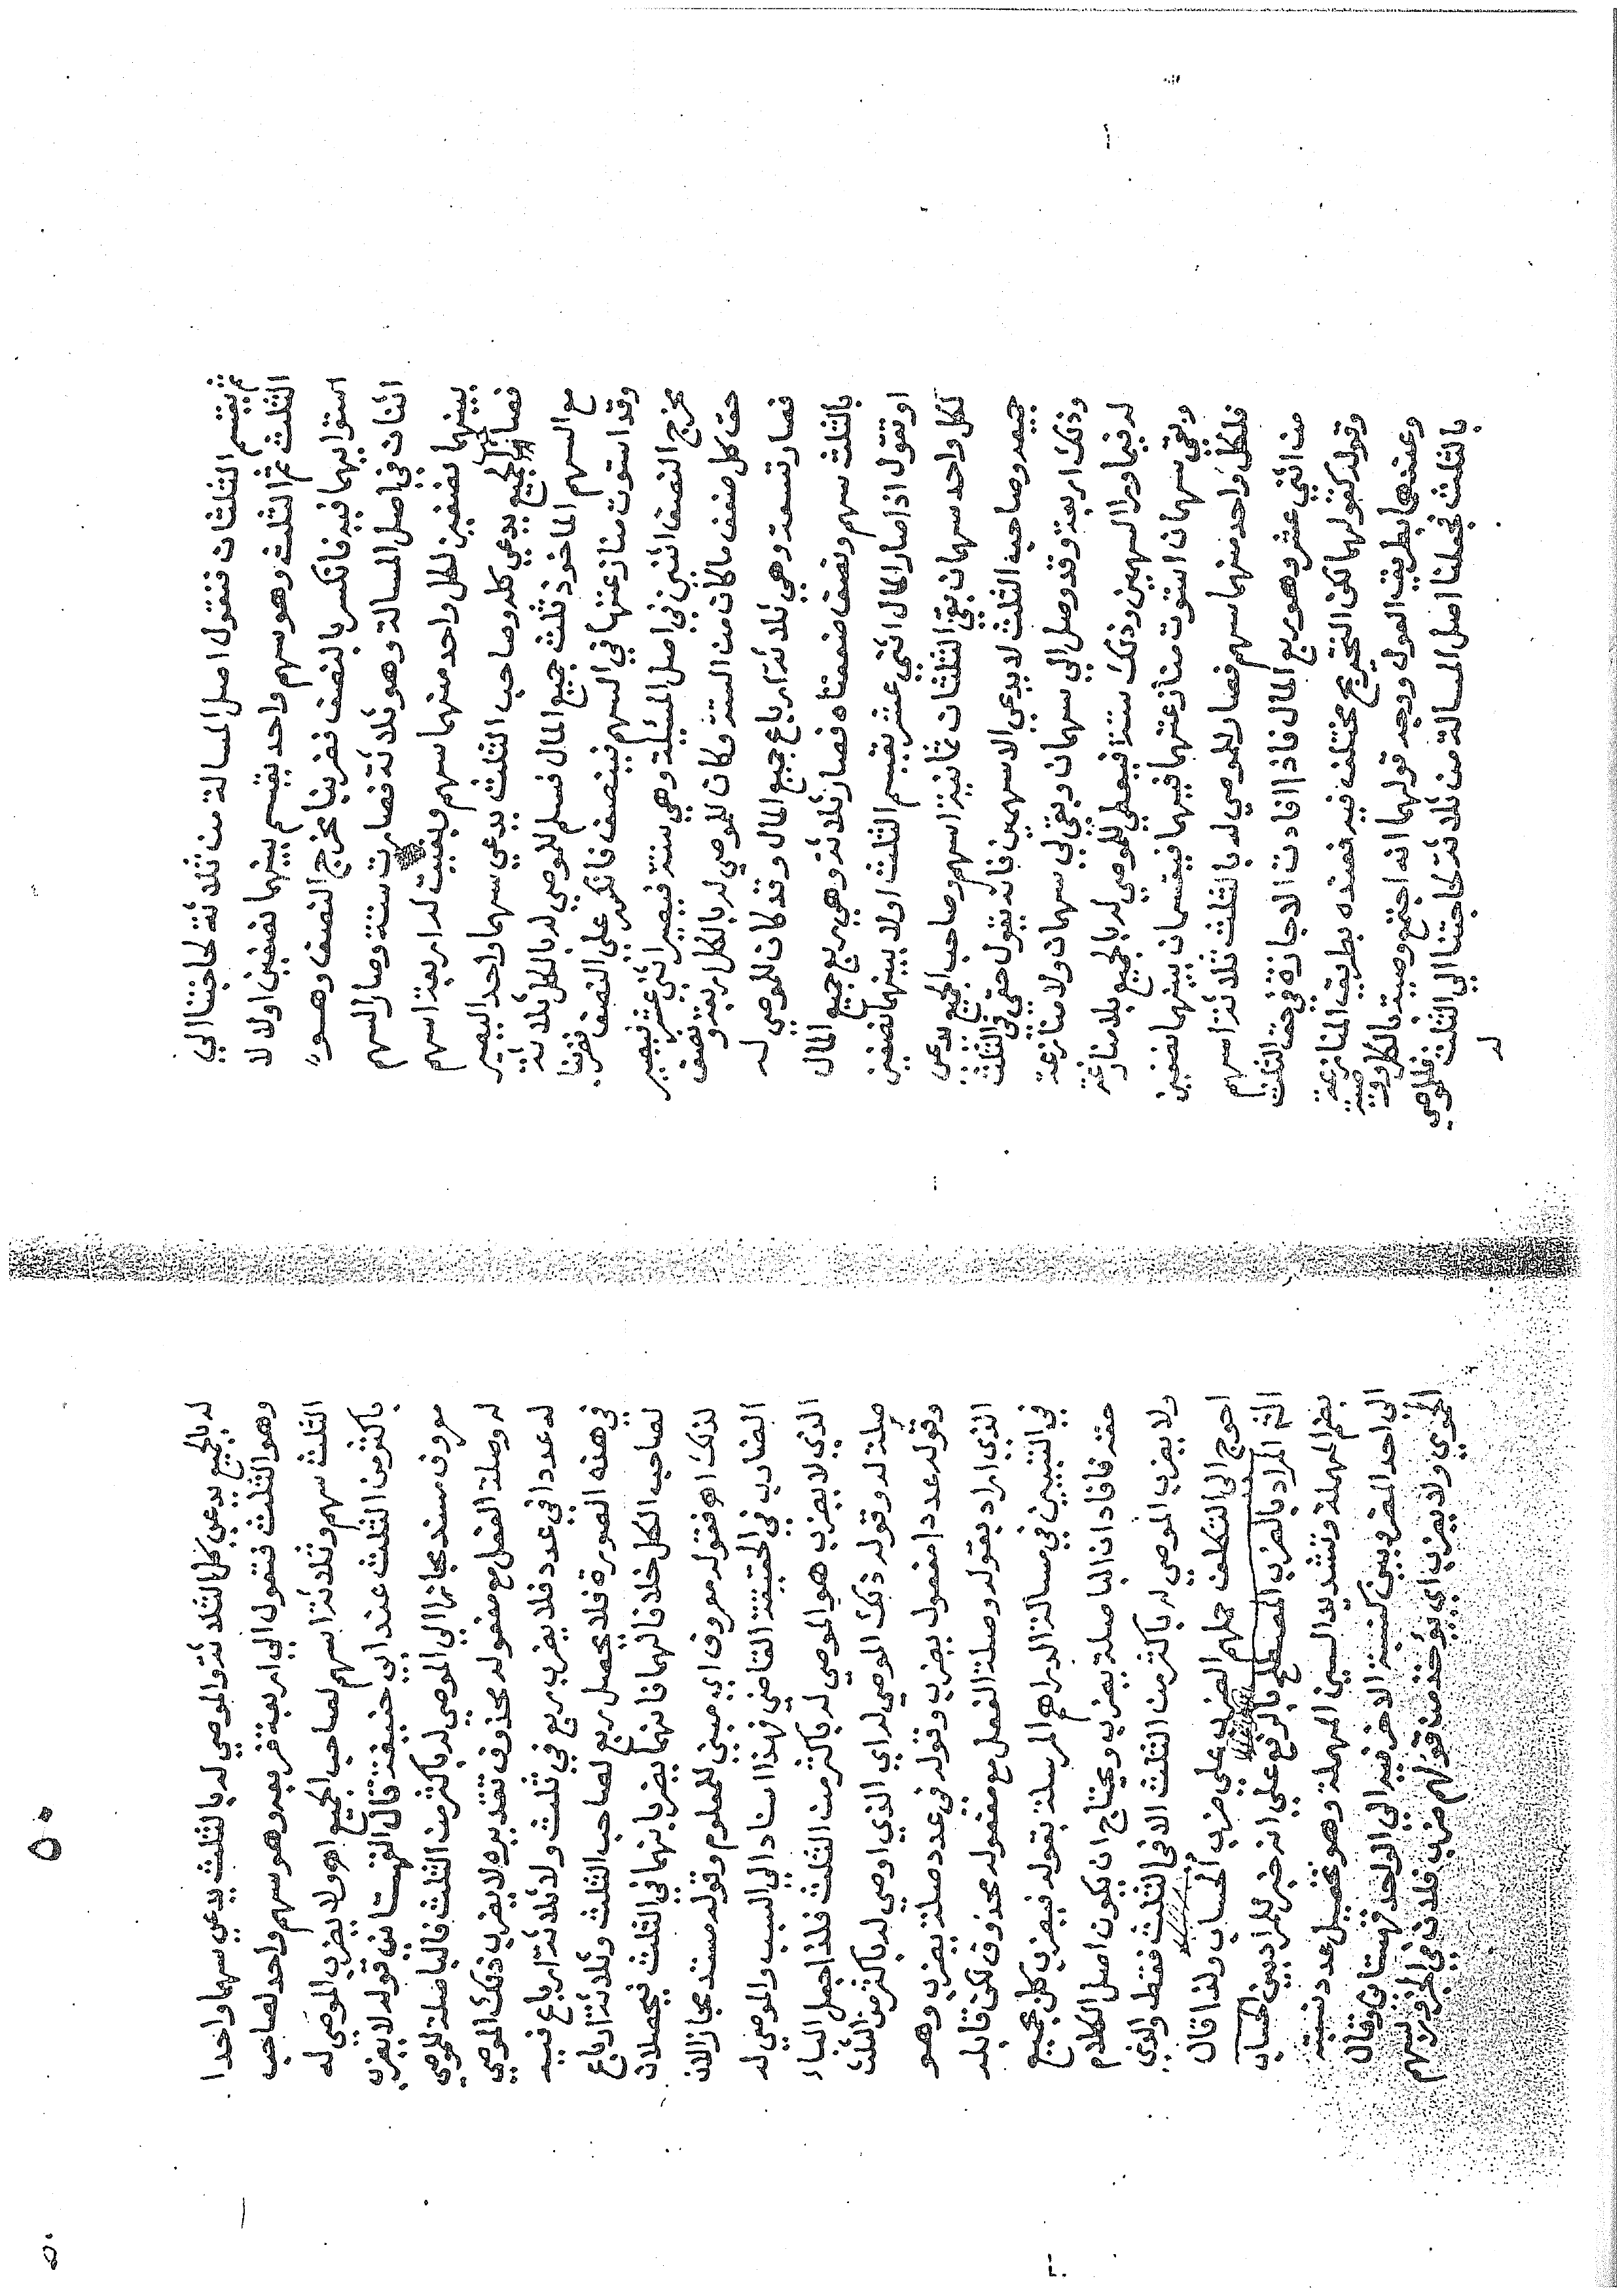 ثم يقسم الثلثان فنقول اصل المسالة من ثلاثة لحاجتنا الي
الثلث ثم الثلث وهو سهم واحد يقسم بينهما نصفين اولا لا
استوايهما فيه فانكسر بالنصف فضربنا مخرج النصف وهو
اثنان في اصل المسالة وهو ثلاثة فصارت ستة وصار السهم
بينهما نصفين لكل واحد منهما سهم وبقيت له اربعة اسهم
الجميع يدعي كله وصاحب الثلث يدعي سهما واحدا ليصير
مع السهم الماخوذ ثلث جميع المال فسلم للموصي له بالكل ثلاثة
وقد استوت منازعتهما في السهم فينصف فانكسر علي النصف فضربنا
مخرج النصف اثنين في اصل المسيلة وهي ستة فيصير اثني عشر فيصير
حق كل ضعف ما كان من الستة وكان للموصي له بالكل اربعة ونصف
فصارت تسعة وهي ثلاثة ارباع جميع المال وقد كان للموصي له
بالثلث سهم ونصف ضعفناه فصار ثلاثة وهي ربع جميع المال
او تقول اذا صار المال اثني عشر يقسم الثلث اولا بينهما نصفين
لكل واحد سهمان بقي الثلثان ثمانية اسهم وصاحب الجميع يدعي
جميعه وصاحب الثلث لا يدعي الا سهمين فانه يقول حقي في الثلث
وذلك اربعة وقد وصل الي سهمان وبقي لي سهمان ولا منازعة
له فيما ورا السهمين وذلك ستة فيعطي للموصي له بالجميع بلا منازعة
وبقي سهمان استوت منازعتهما فيهما فيقسمان بينهما نصفين
فلكل واحد منهما سهم فصار للموصي له بالثلث ثلاثة اسهم
من اثني عشر وهو ربع المال فاذا افادت الاجازة في حق الثلث
وقوله كقولهما لكن التخريج مختلف فيه فعنده بطريق المنازعة
وعندهما بطريق العول ووجه قولهما انه اجتمع وصية بالكل ووصية
بالثلث فجعلنا اصل المسالة من ثلاثة لحاجتنا الي الثلث فالموصي
له
٥٠
له بالجميع يدعي كل الثلاثة والموصي له بالثلث يدعي سهما واحدا
وهو الثلث فتعول الي اربعة فربعه وهو سهم واحد لصاحب
الثلث سهم وثلاثة اسهم لصاحب الجميع اه ولا يضرب الموصي له
باكثر من الثلث عند ابي حنيفة قال القهستاني قوله لا يضرب
معروف سند مجازا الي الموصي له باكثر من الثلث فالبا صلة للموصي
له وصلة الفعل مع مفعوله محذوف تقديره لا يضرب ذلك الموصي
له عددا في عدد فلا يضرب ربع في ثلث ولا ثلاثة ارباع فيه
في هذه الصورة فلا يحصل ربع لصاحب الثلث وثلاثة ارباع
لصاحب الكل خلافا لهما فانهما يضربانهما في الثلث فيحصلان
لذلك اه فقوله معروف اي مبني للمعلوم وقوله مسند مجاز الان
الضارب في الحقيقة القاضي فهذا اسناد الي السبب والموصي له
الذي لا يضرب هو الموصي له باكثر من الثلث فلذا جعل الباء
صلة له وقوله ذلك الموصي له اي الذي اوصي له باكثر من الثلث
وقوله عددا مفعول يضرب وقوله في عدد صلة يضرب وهو
الذي اراد بقوله وصلة الفعل مع مفعوله محذوف لكن قابله
في التبيين في مسالة الدراهم المرسلة بقوله فيضرب كل بجميع
حقه فافاد ان البا صلة يضرب ويحتاج ان يكون اصل الكلام
ولا يضرب الموصي له باكثر من الثلث الا في الثلث فقط والذي
احوج الي التكلف حملهم الضرب علي ضرب الحساب ولذا قال
الخ المراد بالضرب المصطلح بالرفع علي انه خبر للمراد بين الحساب
بضم المهملة وتشديد السين المهملة وهو تحصيل عدد نسبته
الي احد المضروبين كنسبة الاخر فيه الي الواحد قهستاني وقال
الحموي ولا يضرب اي يؤخذ من قولهم ضرب فلان في الجزور بسهم
٥٠